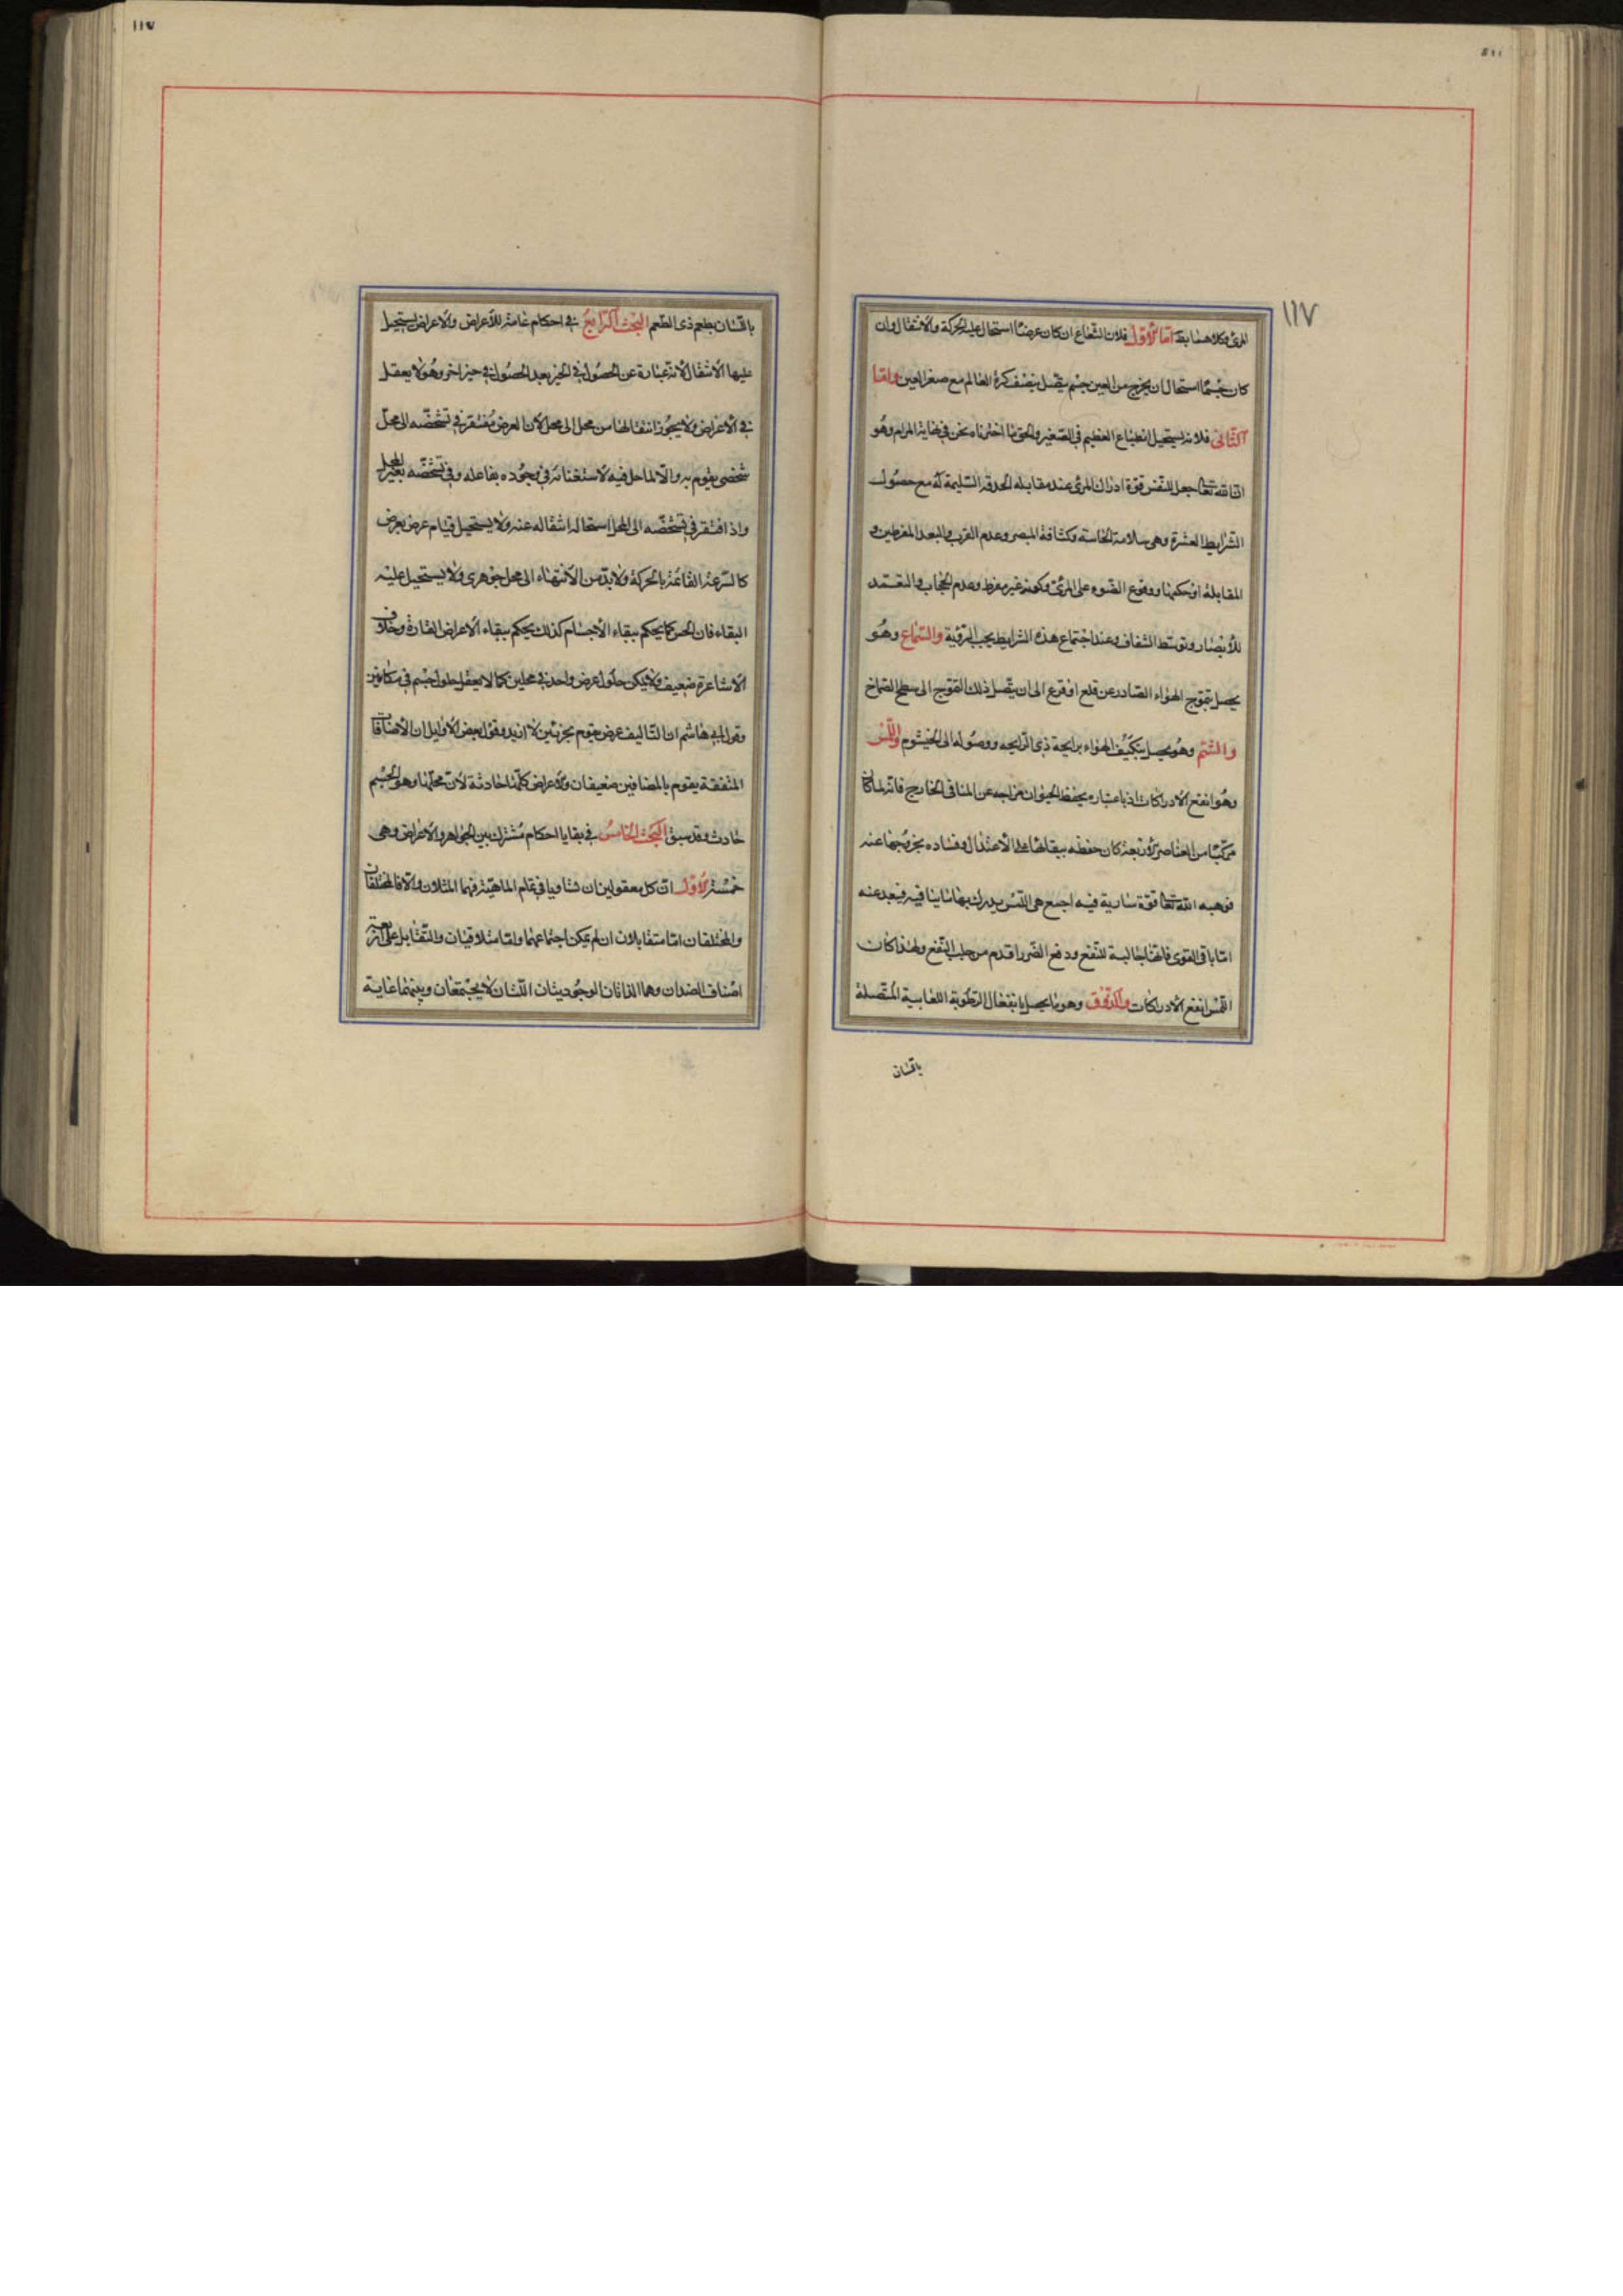 ١١٧
المرئی وكلاهما بط اما الأول فلان الشعاع ان كان عرضا استحال عليه الحركة والانتقال وان
كان جسما استحال ان يخرج من العين جسم يتصل بنصف كرة العالم مع صغر العين واما
الثانی فلانه يستحيل انطباع العظيم فی الصغير والحق ما اخترناه نحن فی نهاية المرام وهو
ان الله تعالى جعل للنفس قوة ادراك المرئی عند مقابلة الحدقة السليمة له مع حصول
الشرايط العشرة وهی سلامة الحاسة وكثافة المبصر وعدم القرب والبعد المفرطين و
المقابلة او حكمها ووقوع الضوء علی المرئی وكونه غير مفرط وعدم الحجاب والتعمد
للأبصار وتوسط الشفاف وعند اجتماع هذه الشرايط يجب الرؤية والسماع وهو
يحصل بتموج الهواء الصادر عن قلع او قرع الی ان يتصل ذلك التموج الی سطح الصماخ
والشم وهو يحصل بتكيف الهواء برايحة ذی الرايحه ووصوله الی الخيشوم واللمس
وهو انفع الادراكات اذ باعتباره يحفظ الحيوان مزاجه عن المنافی الخارج فانه لما كان
مركبا من العناصر الأربعة كان حفظه ببقائها علی الأعتدال وفساده بخروجها عنه
فوهبه الله تعالى قوة سارية فيه اجمع هی اللمس يدرك بها ما ينافيه فيبعد عنه
اما باقی القوی فانها جالبة للنفع ودفع الضرر اقدم من جلب النفع ولهذا كان
اللمس انفع الادراكات والذوق وهو ما يحصل بانفعال الرطوبة اللعابية المتصلة
باللسان
باللسان بطعم ذی الطعم البحث الرابع فی احكام عامة للأعراض والاعراض يستحيل
عليها الأنتقال لأنه عبارة عن الحصول فی الحيز بعد الحصول فی حيز اخر وهو لا يعقل
فی الأعراض ولا يجوز انتقالها من محل الی محل لأن العرض مفتقر فی تشخصه الی محل
شخصی يقوم به والا لما حل فيه لاستغنائه فی وجوده بفاعله وفی تشخصه بغير المحل
واذا افتقر فی تشخصه الی المحل استحال انتقاله عنه ولا يستحيل قيام عرض بعرض
كالسرعة القائمة بالحركة ولا بد من الأنتهاء الی محل جوهری ولا يستحيل عليه
البقاء فان الحس كما يحكم ببقاء الأجسام كذلك يحكم ببقاء الأعراض القارة وخلاف
الأشاعرة ضعيف ولا يمكن حلول عرض واحد فی محلين كما لا يعقل حلول جسم فی مكانين
وقول ابی هاشم ان التاليف عرض يقوم بجزئين لا ازيد وقول بعض الأوايل ان الأضافات
المتفقة يقوم بالمضافين ضعيفان والأعراض كلها حادثة لأن محلها وهو الجسم
حادث وقد سبق البحث الخامس فی بقايا احكام مشترك بين الجواهر والأعراض وهی
خمسة الأول ان كل معقولين ان تساويا فی تمام الماهية فهما المثلان والا فالمختلفان
والمختلفان اما متقابلان ان لم يمكن اجتماعهما واما متلاقيان والتقابل علی اربعة
اصناف الضدان وهما الذاتان الوجوديتان اللتان لا يجتمعان وبينهما غاية